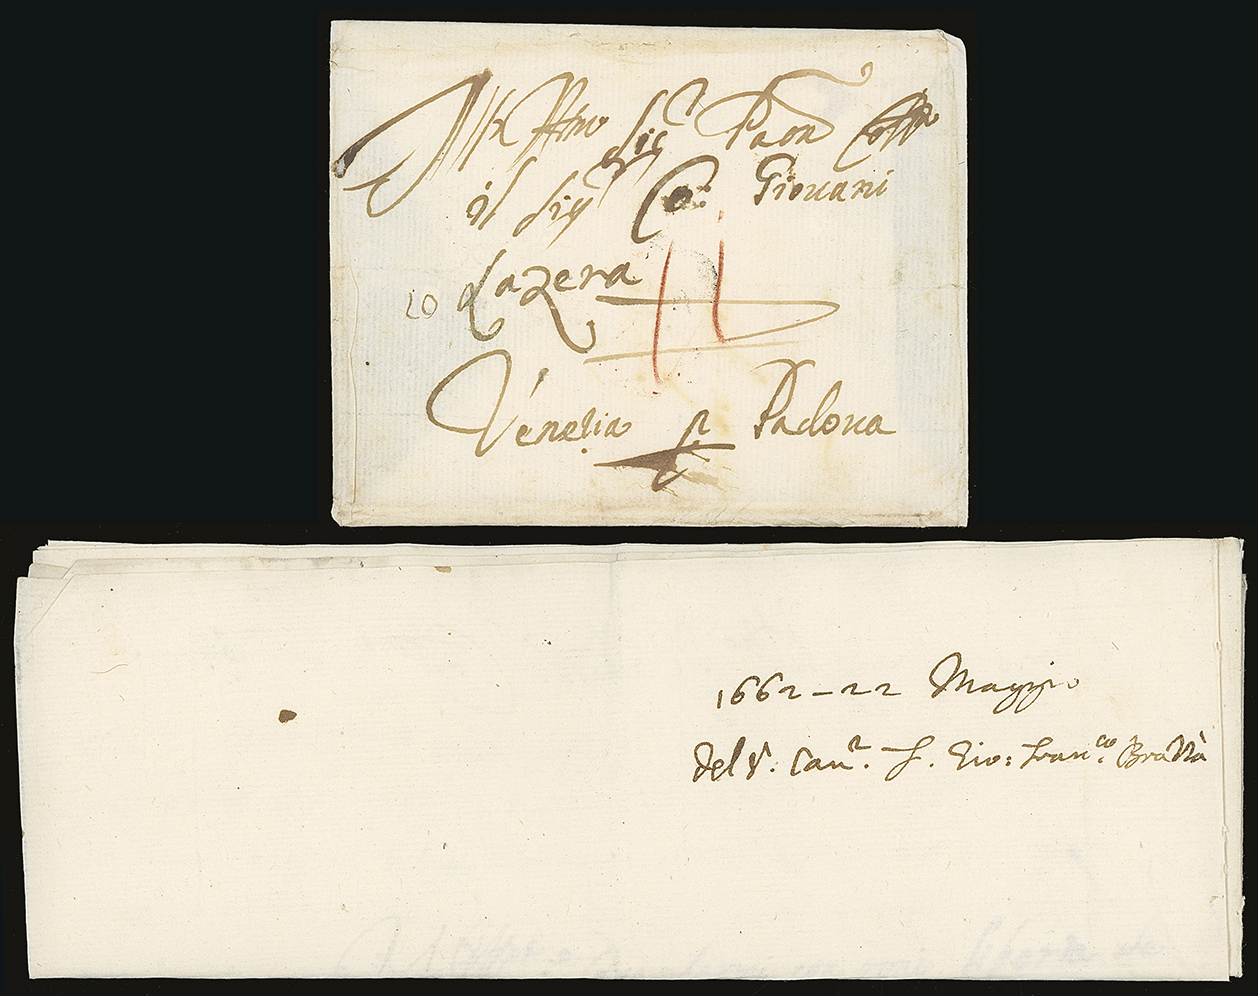 Ill.mo Sig.r Pron Coll.mo
il Sig.r Co: Giouani
Lazera
20
Venetia p Padoua
1662-22 Maggio
Del S. Cau.r F. Gio: Fran.co Brazzà